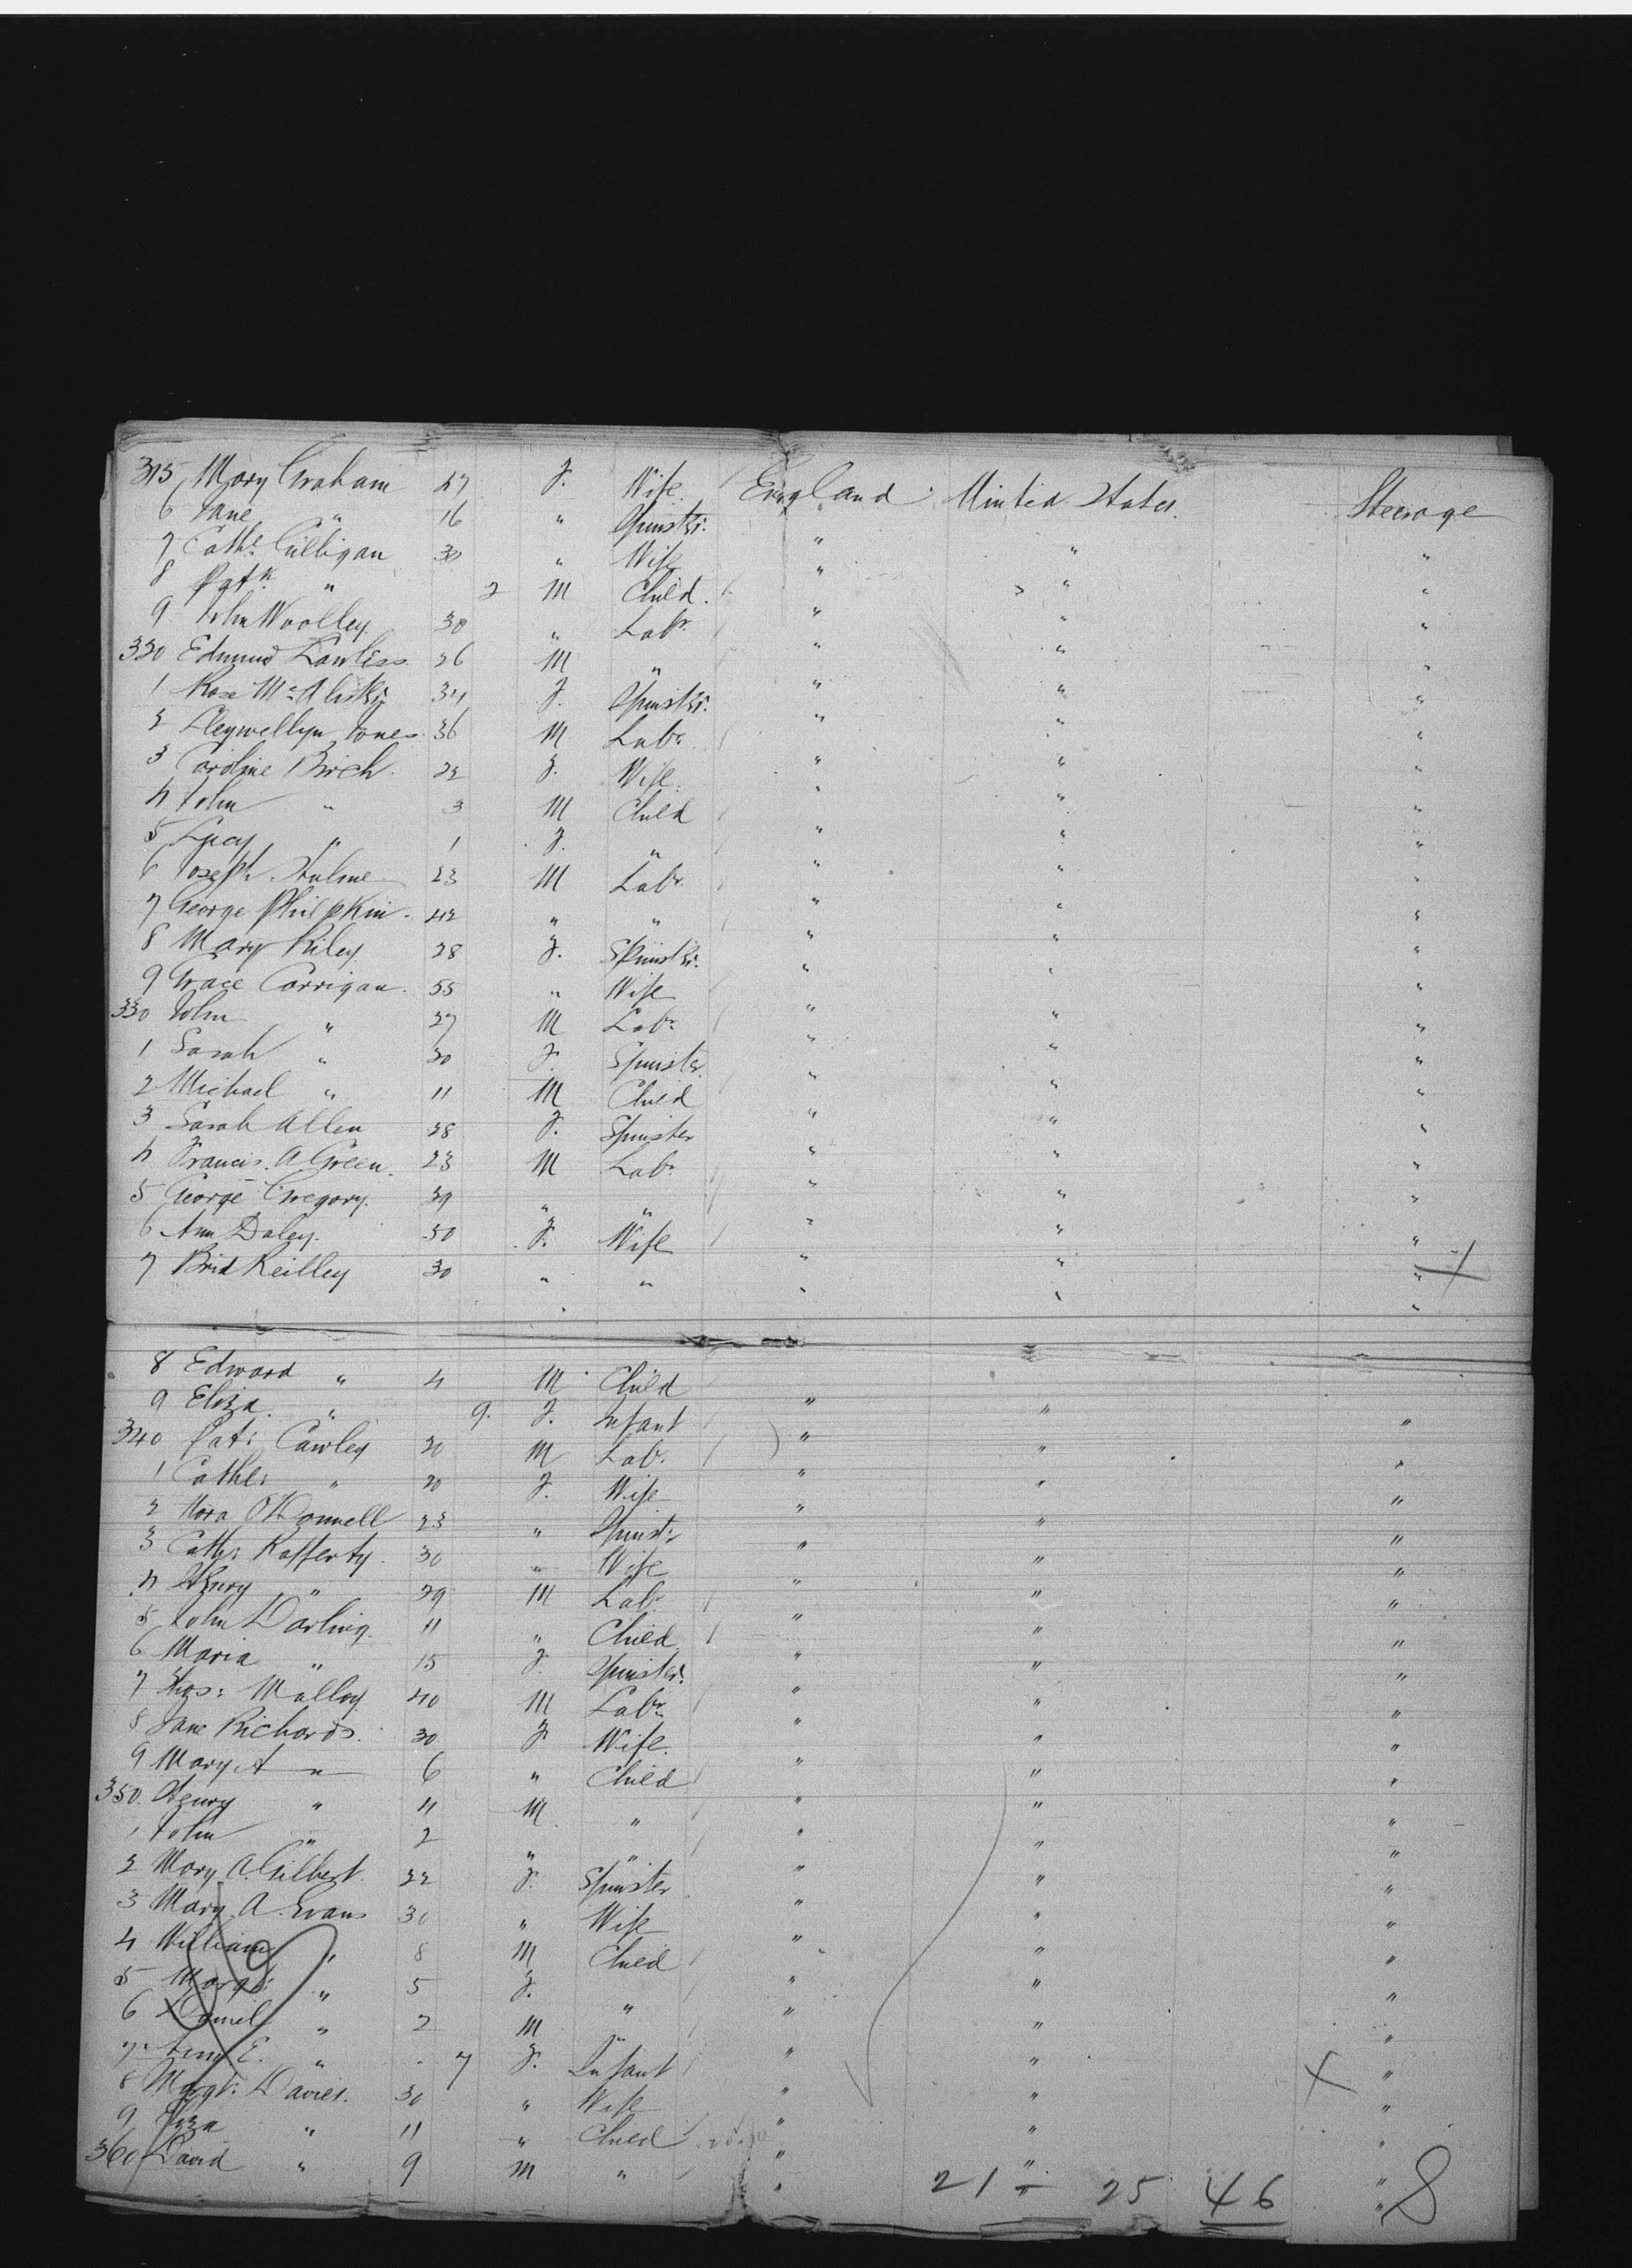 315 Mary Graham 27 F. Wife England United States Steerage
6 Jane " 16 " Spinstr. " " "
7 Cathe Culligan 30 " Wife " " "
8 Patk " 2 M Child. " " "
9 John Woolley 30 " Labr " " "
320 Edmund Lawless 26 M " " " "
1 Rose McAlister 34 F. Spinstr. " " "
2 Lleywellyn Jones 36 M Labr " " "
3 Caroline Birch 22 F. Wife " " "
4 John " 3 M Child " " "
5 Lucy " 1 F. " " " "
6 Joseph Hulme 23 M Labr " " "
7 George Philpkin 42 " " " " "
8 Mary Riley 28 F. Spinstr. " " "
9 Grace Corrigan 55 " Wife " " "
330 John " 27 M Labr " " "
1 Sarah " 20 F. Spinstr. " " "
2 Michael " 11 M Child " " "
3 Sarah Allen 28 F. Spinster " " "
4 Francis A Green 23 M Labr " " "
5 George Gregory 39 " " " " "
6 Ann Daley 50 F. Wife " " "
7 Brid Reilley 30 " " " " "
8 Edward " 4 M Child " " "
9 Eliza " 9 F. Infant " " "
340 Pat: Cawley 20 M Labr " " "
1 Cathe: " 20 F. Wife " " "
2 Nora O'Donnell 23 " Spinstr " " "
3 Cath: Rafferty 30 " Wife " " "
4 Henry " 29 M Labr " " "
5 John Darling 11 " Child " " "
6 Maria " 15 F. Spinster " " "
7 Thos: Malloy 40 M Labr " " "
8 Jane Richards 30 F Wife " " "
9 Mary A " 6 " Child " " "
350 Henry " 4 M " " " "
1 John " 2 " " " " "
2 Mary A. Gilbert 22 F. Spinster " " "
3 Mary A. Evans 30 " Wife " " "
4 William " 8 M Child " " "
5 Margt: " 5 F. " " " "
6 Daniel " 2 M " " " "
7 Ann E. " 7 F. Infant " " "
8 Margt: Davies 30 " Wife " " "
9 Eliza " 11 " Child " " "
360 David " 9 M " " " "
21 - 25 46 8